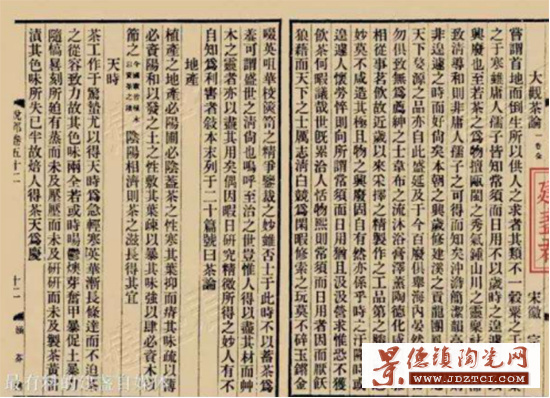 大觀茶論 一卷全 宋徽宗
嘗謂首地而倒生所以供人之求者其類不一穀粟之
之于寒雖庸人孺子皆知常須而日用不以歲時之遑遽
興廢也至若茶之爲物擅甌閩之秀氣鍾山川之靈稟祛
致清導和則非庸人孺子之可得而知矣沖澹簡潔韻高
非遑遽之時而好尚矣本朝之興歲修建溪之貢龍團
天下婺源之品亦自此盛延及于今百廢俱舉海內晏然
勿俱致無爲薦紳之士韋布之流沐浴膏澤薰陶德化咸
相從事茗飲故近歲以來采擇之精製作之工品第之
妙莫不咸造其極且物之興廢固自有然亦係乎時之汙隆時
遑遽人懷勞悴則向所謂常須而日用猶且汲汲營求惟恐不獲
飲茶何暇議哉世既累洽人恬物熙則常須而日用者因而厭飫
狼藉而天下之士厲志清白競爲閒暇修索之玩莫不碎玉鏘金
啜英咀華校篋笥之精爭鑒裁之妙雖否士于此時不以蓄茶爲
羞可謂盛世之清尚也嗚呼至治之世豈惟人得以盡其材而草
木之靈者亦以盡其用矣偶因暇日研究精微所得之妙人有不
自知爲利害者敘本末列于二十篇號曰茶論
地產
植產之地崖必陽圃必陰蓋茶之性寒其葉抑而瘠其味疏以薄
必資陽和以發之土之性敷其葉疎以暴其味強以肆必資木
節之 今圃家皆植木以資茶之陰 陰陽相濟則茶之滋長得其宜
天時
茶工作于驚蟄尤以得天時爲急輕寒英華漸長條達而不迫茶
之從容致力故其色味兩全若或時暘鬱燠芽奮甲暴促工暴
隨槁晷刻所迫有蒸而未及壓壓而未及研研而未及製茶黃留
漬其色味所失已半故焙人得茶天爲慶
說郛卷五十二
十二
涵芬
景德镇陶瓷网
WWW.JDZTCI.COM